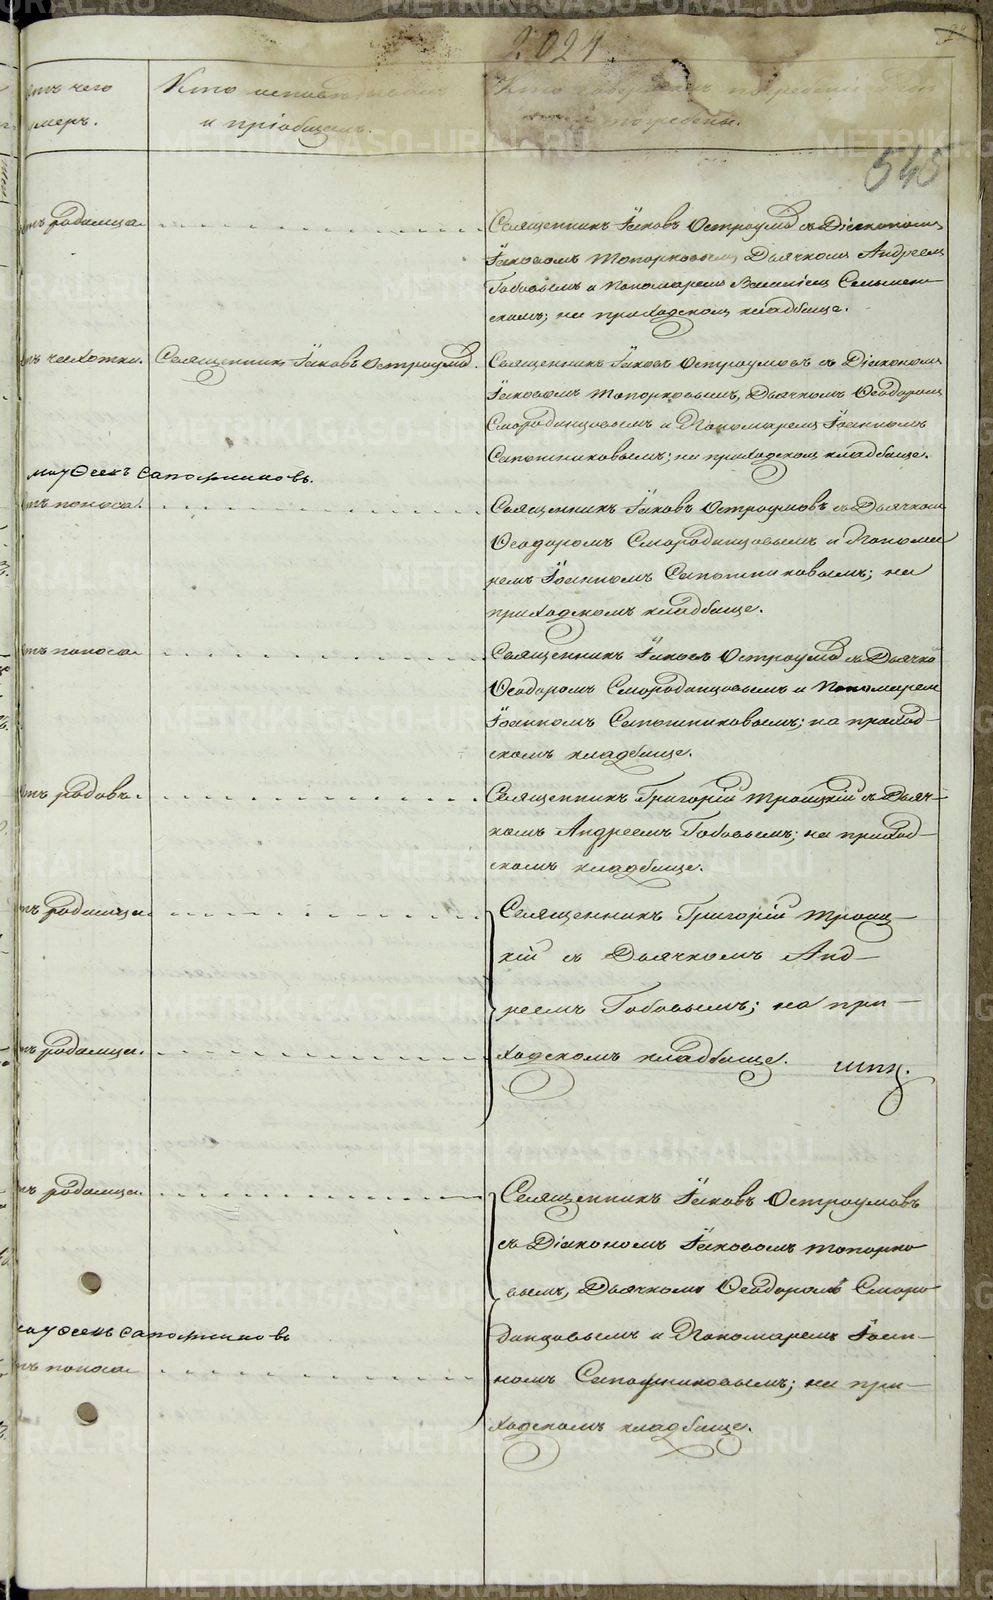 2024
545
Отъ чего умеръ.
Кто исповѣдывалъ и пріобщалъ.
Кто совершалъ погребеніе и гдѣ погребены.
отъ родимца.
Священникъ Іаковъ Остроумовъ съ Діакономъ
Іаковомъ Топорковымъ, Дьячкомъ Андреемъ
Гобовымъ и Пономаремъ
на приходскомъ кладбище.
отъ чехотки.
Священникъ Іаковъ Остроумовъ.
Священникъ Іаковъ Остроумовъ съ Діакономъ
Іаковомъ Топорковымъ, Дьячкомъ Ѳеодоромъ
Смородинцовымъ и Пономаремъ Іоанномъ
Сапожниковымъ; на приходскомъ кладбище.
Сапожниковъ.
отъ поноса.
Священникъ Іаковъ Остроумовъ съ Дьячкомъ
Ѳеодоромъ Смородинцовымъ и Понома
ремъ Іоанномъ Сапожниковымъ; на
приходскомъ кладбище.
отъ поноса
Священникъ Іаковъ Остроумовъ съ Дьячко
Ѳеодоромъ Смородинцовымъ и Пономаремъ
Іоанномъ Сапожниковымъ; на приход-
скомъ кладбище.
отъ родовъ.
Священникъ Григорій Троицкій съ Дьяч-
комъ Андреемъ Гобовымъ; на приход-
скомъ кладбище.
отъ родимца.
Священникъ Григорій Троиц-
кій съ Дьячкомъ Анд-
реемъ Гобовымъ; на при-
отъ родимца.
ходскомъ кладбище.
отъ родимца.
Священникъ Іаковъ Остроумовъ
съ Діакономъ Іаковомъ Топорко
вымъ, Дьячкомъ Ѳеодоромъ Сморо
Сапожниковъ
динцовымъ и Пономаремъ Іоан-
отъ поноса
номъ Сапожниковымъ; на при-
ходскомъ кладбище.
METRIKI.GASO-URAL.RU